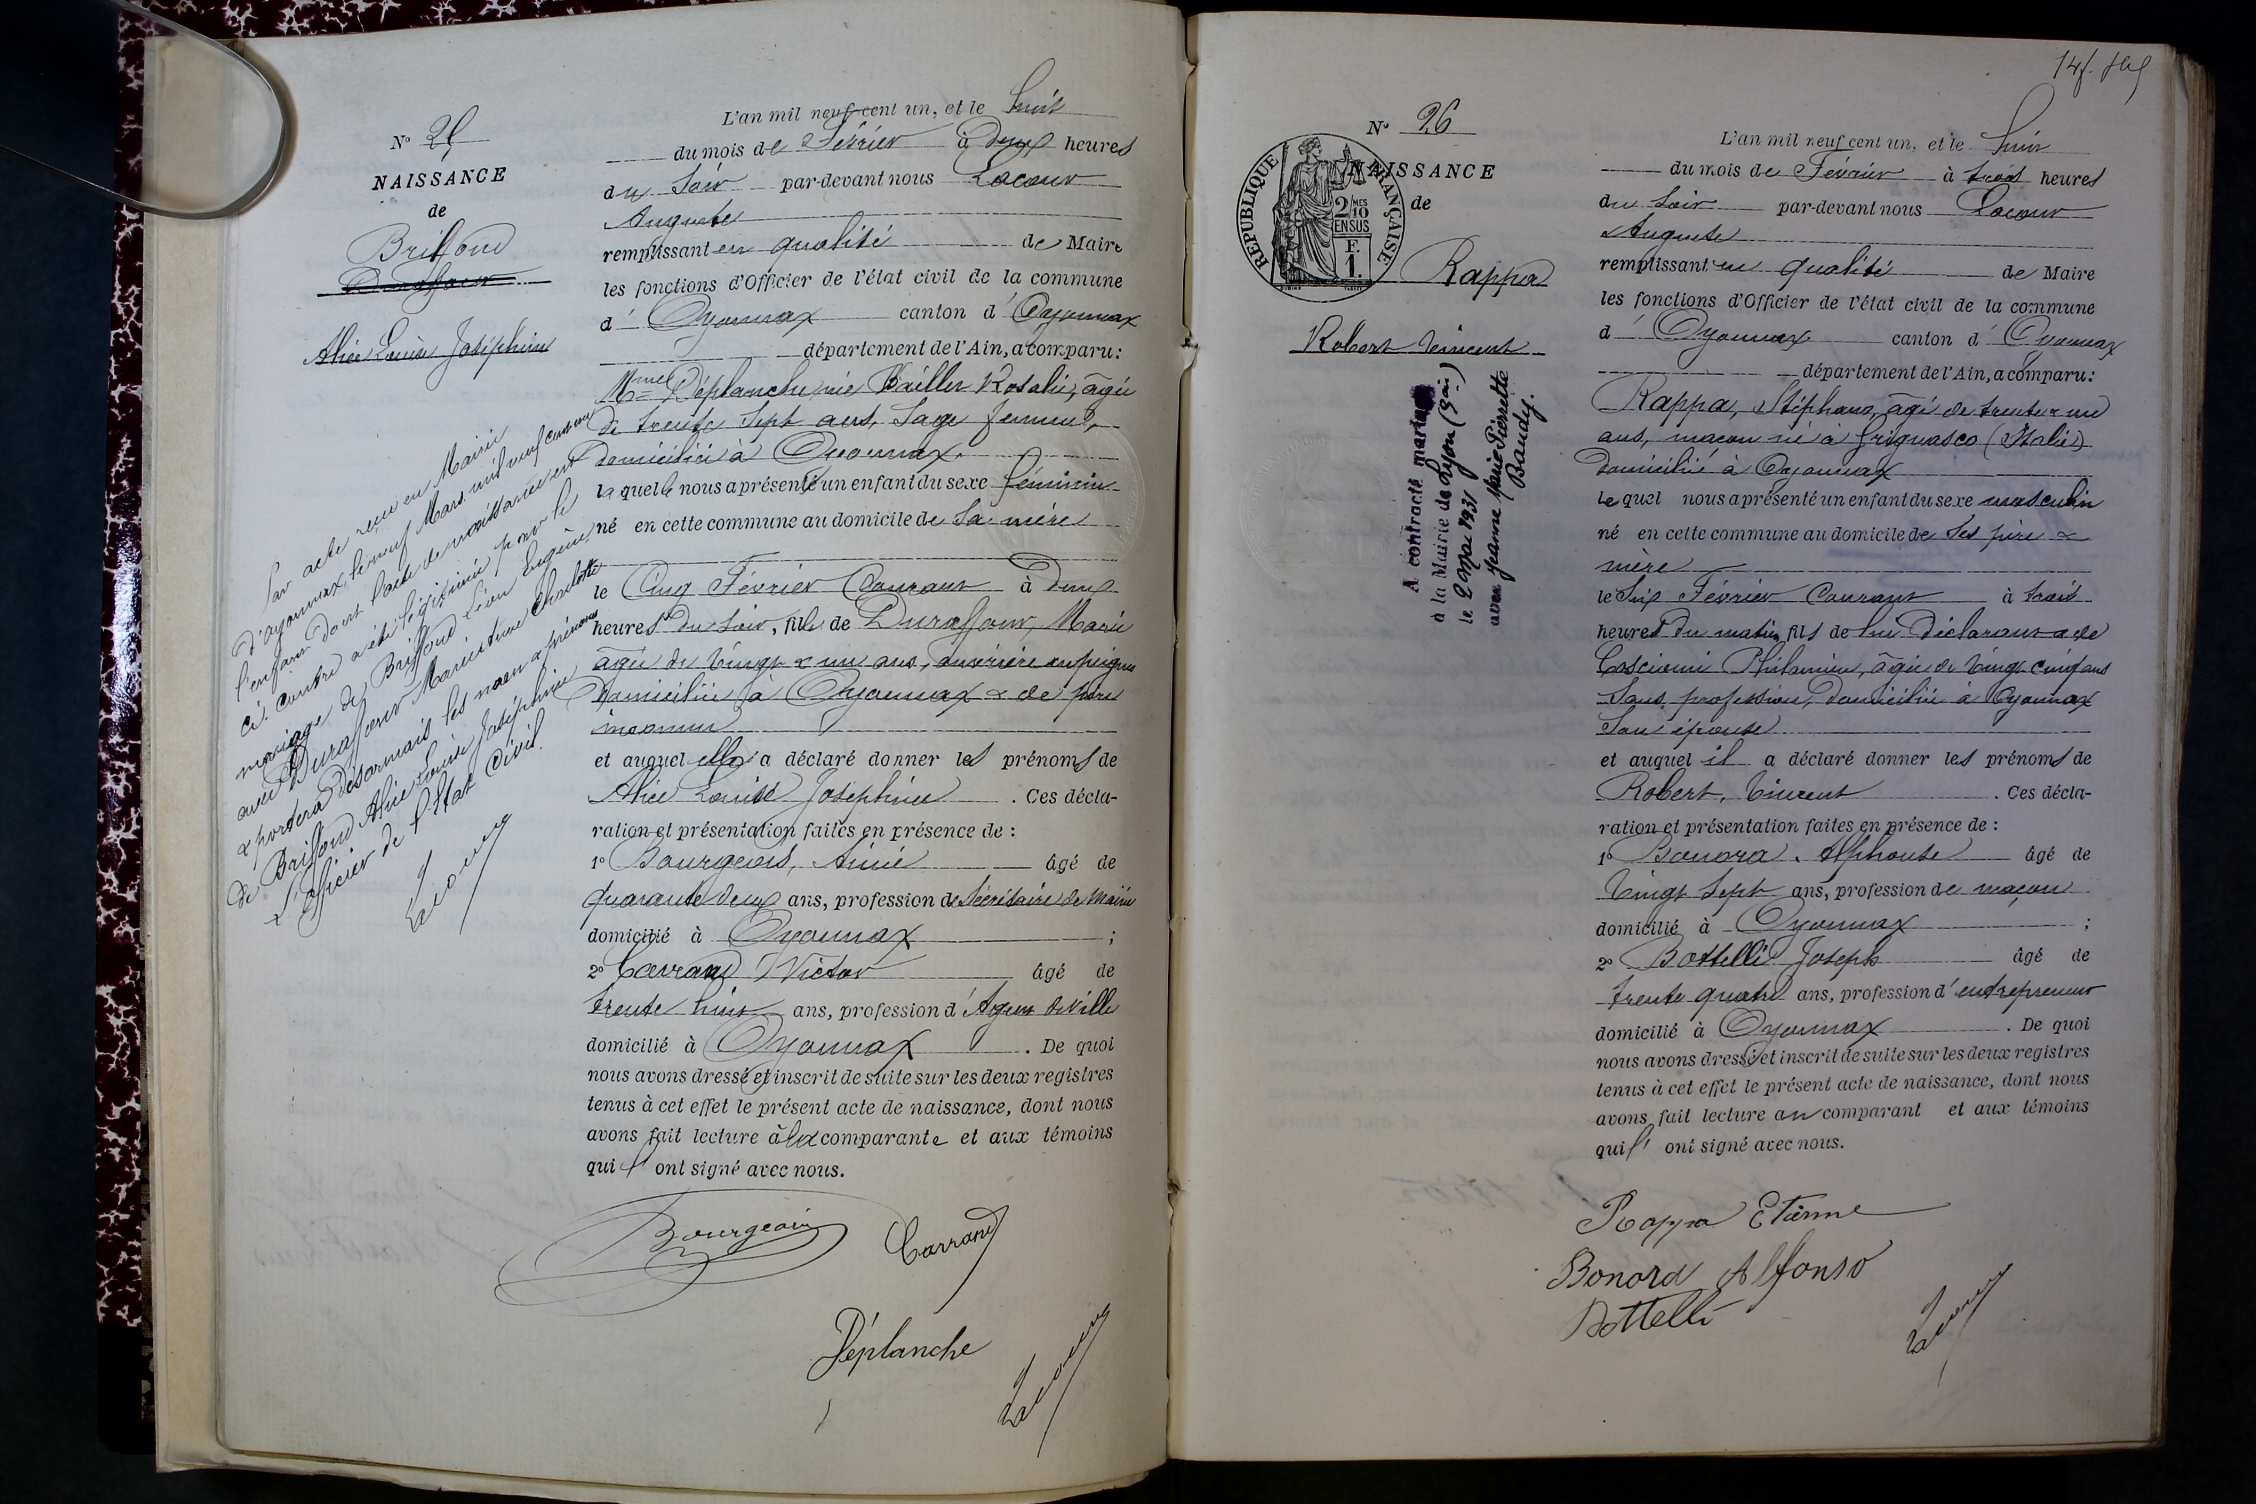 N° 25
NAISSANCE
de
Briffond
Duraffour
Alice Louise Joséphine
Par acte reçu en Mairie
d'Oyonnax le neuf Mars mil neuf cent
l'enfant dont l'acte de naissance est
ci-contre a été légitimée par le
mariage de Briffond Léon Eugène
avec Duraffour Marie Charlotte
& portera désormais les nom & prénoms
de Briffond Alice Louise Joséphine
L'officier de l'Etat Civil.
Lacour
L'an mil neuf cent un, et le huit
du mois de Février à deux heures
du Soir par-devant nous Lacour
Auguste
remplissant en qualité de Maire
les fonctions d'Officier de l'état civil de la commune
d' Oyonnax canton d' Oyonnax
département de l'Ain, a comparu:
Mme Déplanche née Bailler Rosalie, âgée
de trente sept ans, Sage femme,
domiciliée à Oyonnax
laquelle nous a présenté un enfant du sexe féminin
né en cette commune au domicile de Sa mère
le Cinq Février Courant à deux
heures du Soir, fille de Duraffour, Marie
âgée de Vingt & un ans, ouvrière en peignes
domiciliée à Oyonnax & de père
inconnu
et auquel elle a déclaré donner les prénoms de
Alice Louise Joséphine . Ces décla-
ration et présentation faites en présence de :
1° Bourgeois, Aimé âgé de
quarante deux ans, profession de Secrétaire de Mairie
domicilié à Oyonnax ;
2° Carrand Victor âgé de
trente huit ans, profession d'Agent de Ville
domicilié à Oyonnax . De quoi
nous avons dressé et inscrit de suite sur les deux registres
tenus à cet effet le présent acte de naissance, dont nous
avons fait lecture à la comparante et aux témoins
qui l' ont signé avec nous.
Bourgeois Carrand
Déplanche
Lacour
N° 26
NAISSANCE
de
RÉPUBLIQUE FRANÇAISE
2 MES
10
EN SUS
F
1.
Rappa
Robert Vincent
A contracté mariage
à la Mairie de Lyon (3e ai)
le 2 Mai 1931
avec Jeanne Marie Pierrette
Baudy.
L'an mil neuf cent un, et le huit
du mois de Février à trois heures
du Soir par-devant nous Lacour
Auguste
remplissant en qualité de Maire
les fonctions d'Officier de l'état civil de la commune
d' Oyonnax canton d' Oyonnax
département de l'Ain, a comparu:
Rappa, Stéphane, âgé de trente & un
ans, maçon né à Grignasco (Italie)
domicilié à Oyonnax
lequel nous a présenté un enfant du sexe masculin
né en cette commune au domicile de Ses père &
mère
le Six Février Courant à trois
heures du matin, fils de lui déclarant & de
Philomène, âgée de Vingt cinq ans
Sans profession, domiciliée à Oyonnax
Son épouse
et auquel il a déclaré donner les prénoms de
Robert, Vincent . Ces décla-
ration et présentation faites en présence de :
1° Bonora, Alphonse âgé de
Vingt Sept ans, profession de maçon
domicilié à Oyonnax ;
2° Bottelli Joseph âgé de
trente quatre ans, profession d' entrepreneur
domicilié à Oyonnax . De quoi
nous avons dressé et inscrit de suite sur les deux registres
tenus à cet effet le présent acte de naissance, dont nous
avons fait lecture au comparant et aux témoins
qui l' ont signé avec nous.
Rappa Etienne
Bonora Alfonso
Bottelli
Lacour